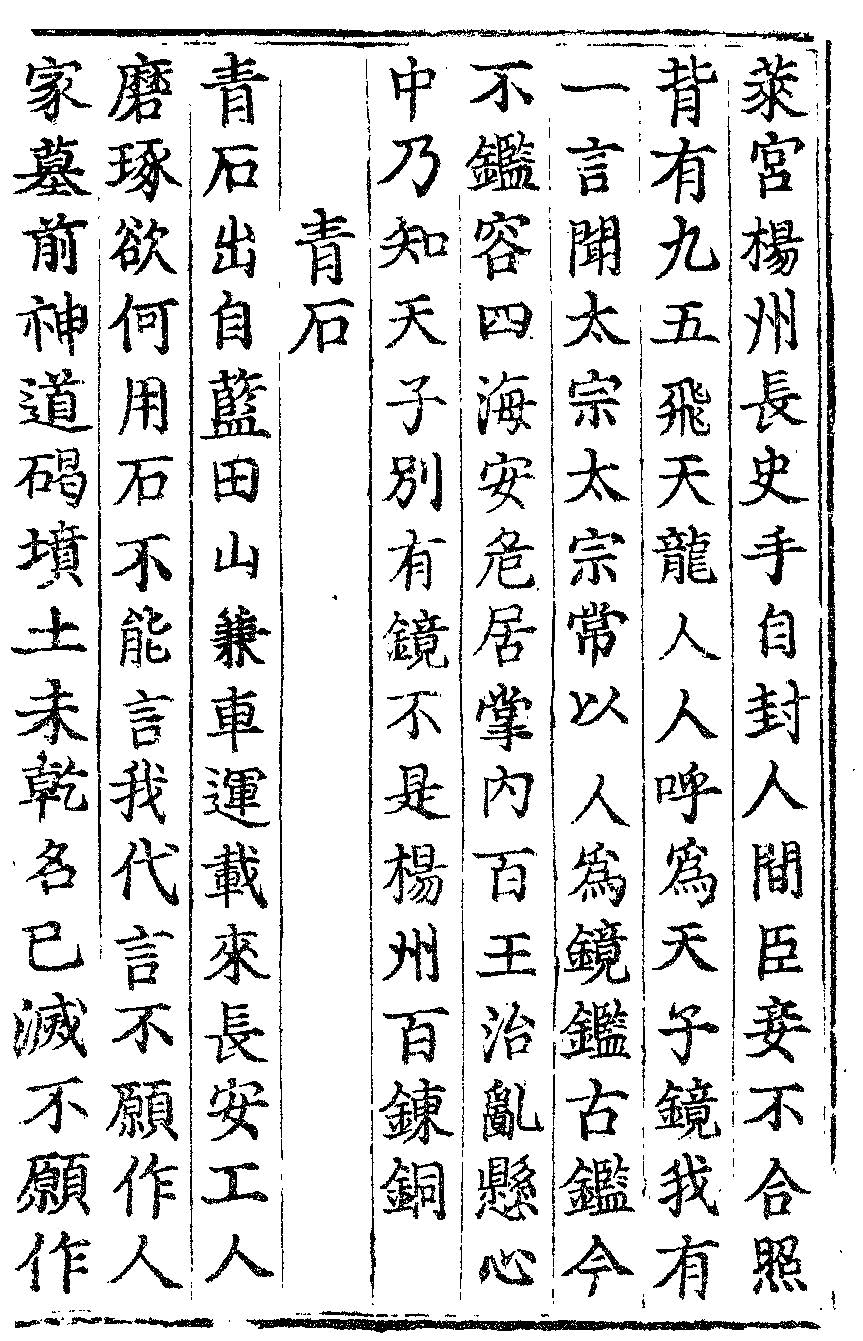 萊宮楊州長史手自封人間臣妾不合照
背有九五飛天龍人人呼爲天子鏡我有
一言聞太宗太宗常以人爲鏡鑑古鑑今
不鑑容四海安危居掌內百王治亂懸心
中乃知天子別有鏡不是楊州百鍊銅
青石
青石出自藍田山兼車運載來長安工人
磨琢欲何用石不能言我代言不願作人
家墓前神道碣墳土未乾名已滅不願作